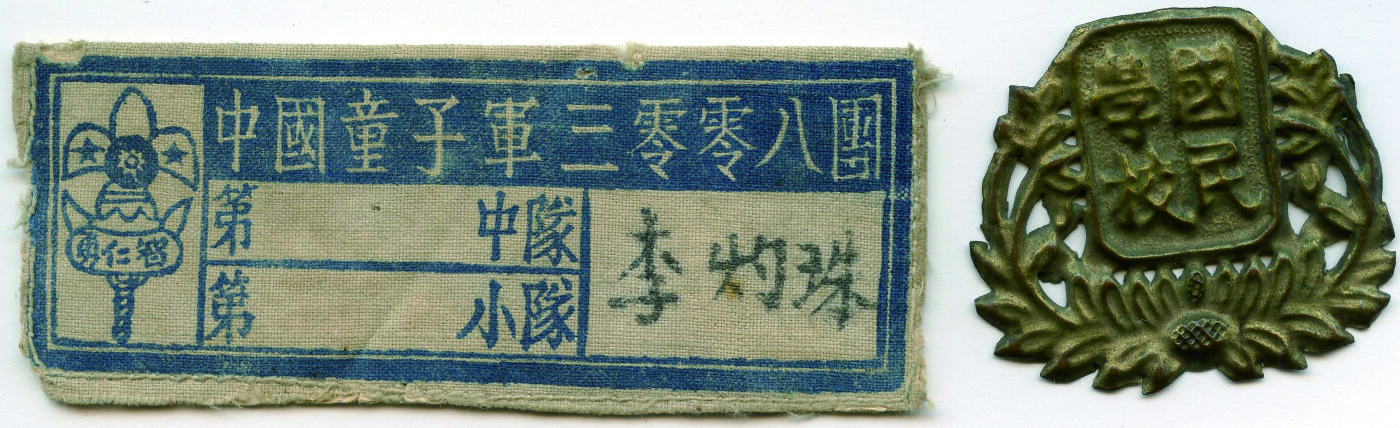 中國童子軍三零零八團
第 中隊
第 小隊
李灼珠
智仁勇
國民
學校